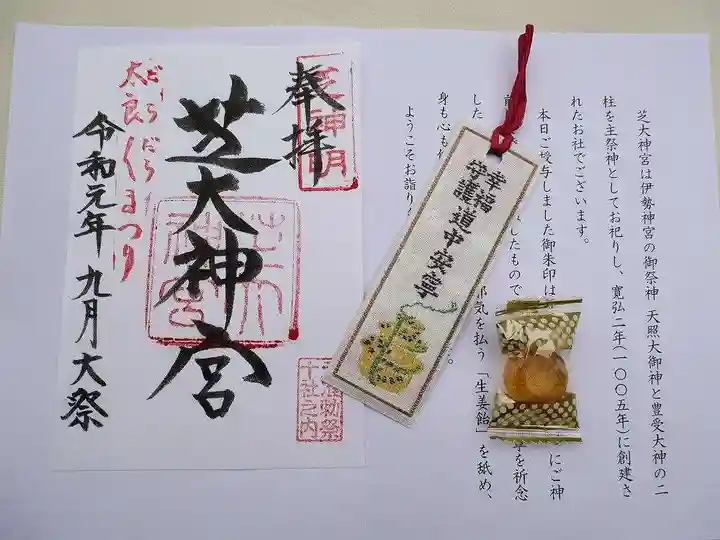 奉拝
芝大神宮
だらだら
太良くまつり
令和元年 九月 大祭
幸福
守護
道中安寧
芝大神宮は伊勢神宮の御祭神 天照大御神と豊受大神の二
柱を主祭神としてお祀りし、寛弘二年(一〇〇五年)に創建さ
れたお社でございます。
本日ご授与しました御朱印は
にご神
したもので
を祈念
した
邪気を払う「生姜飴」を舐め、
身も心も
ようこそお詣り